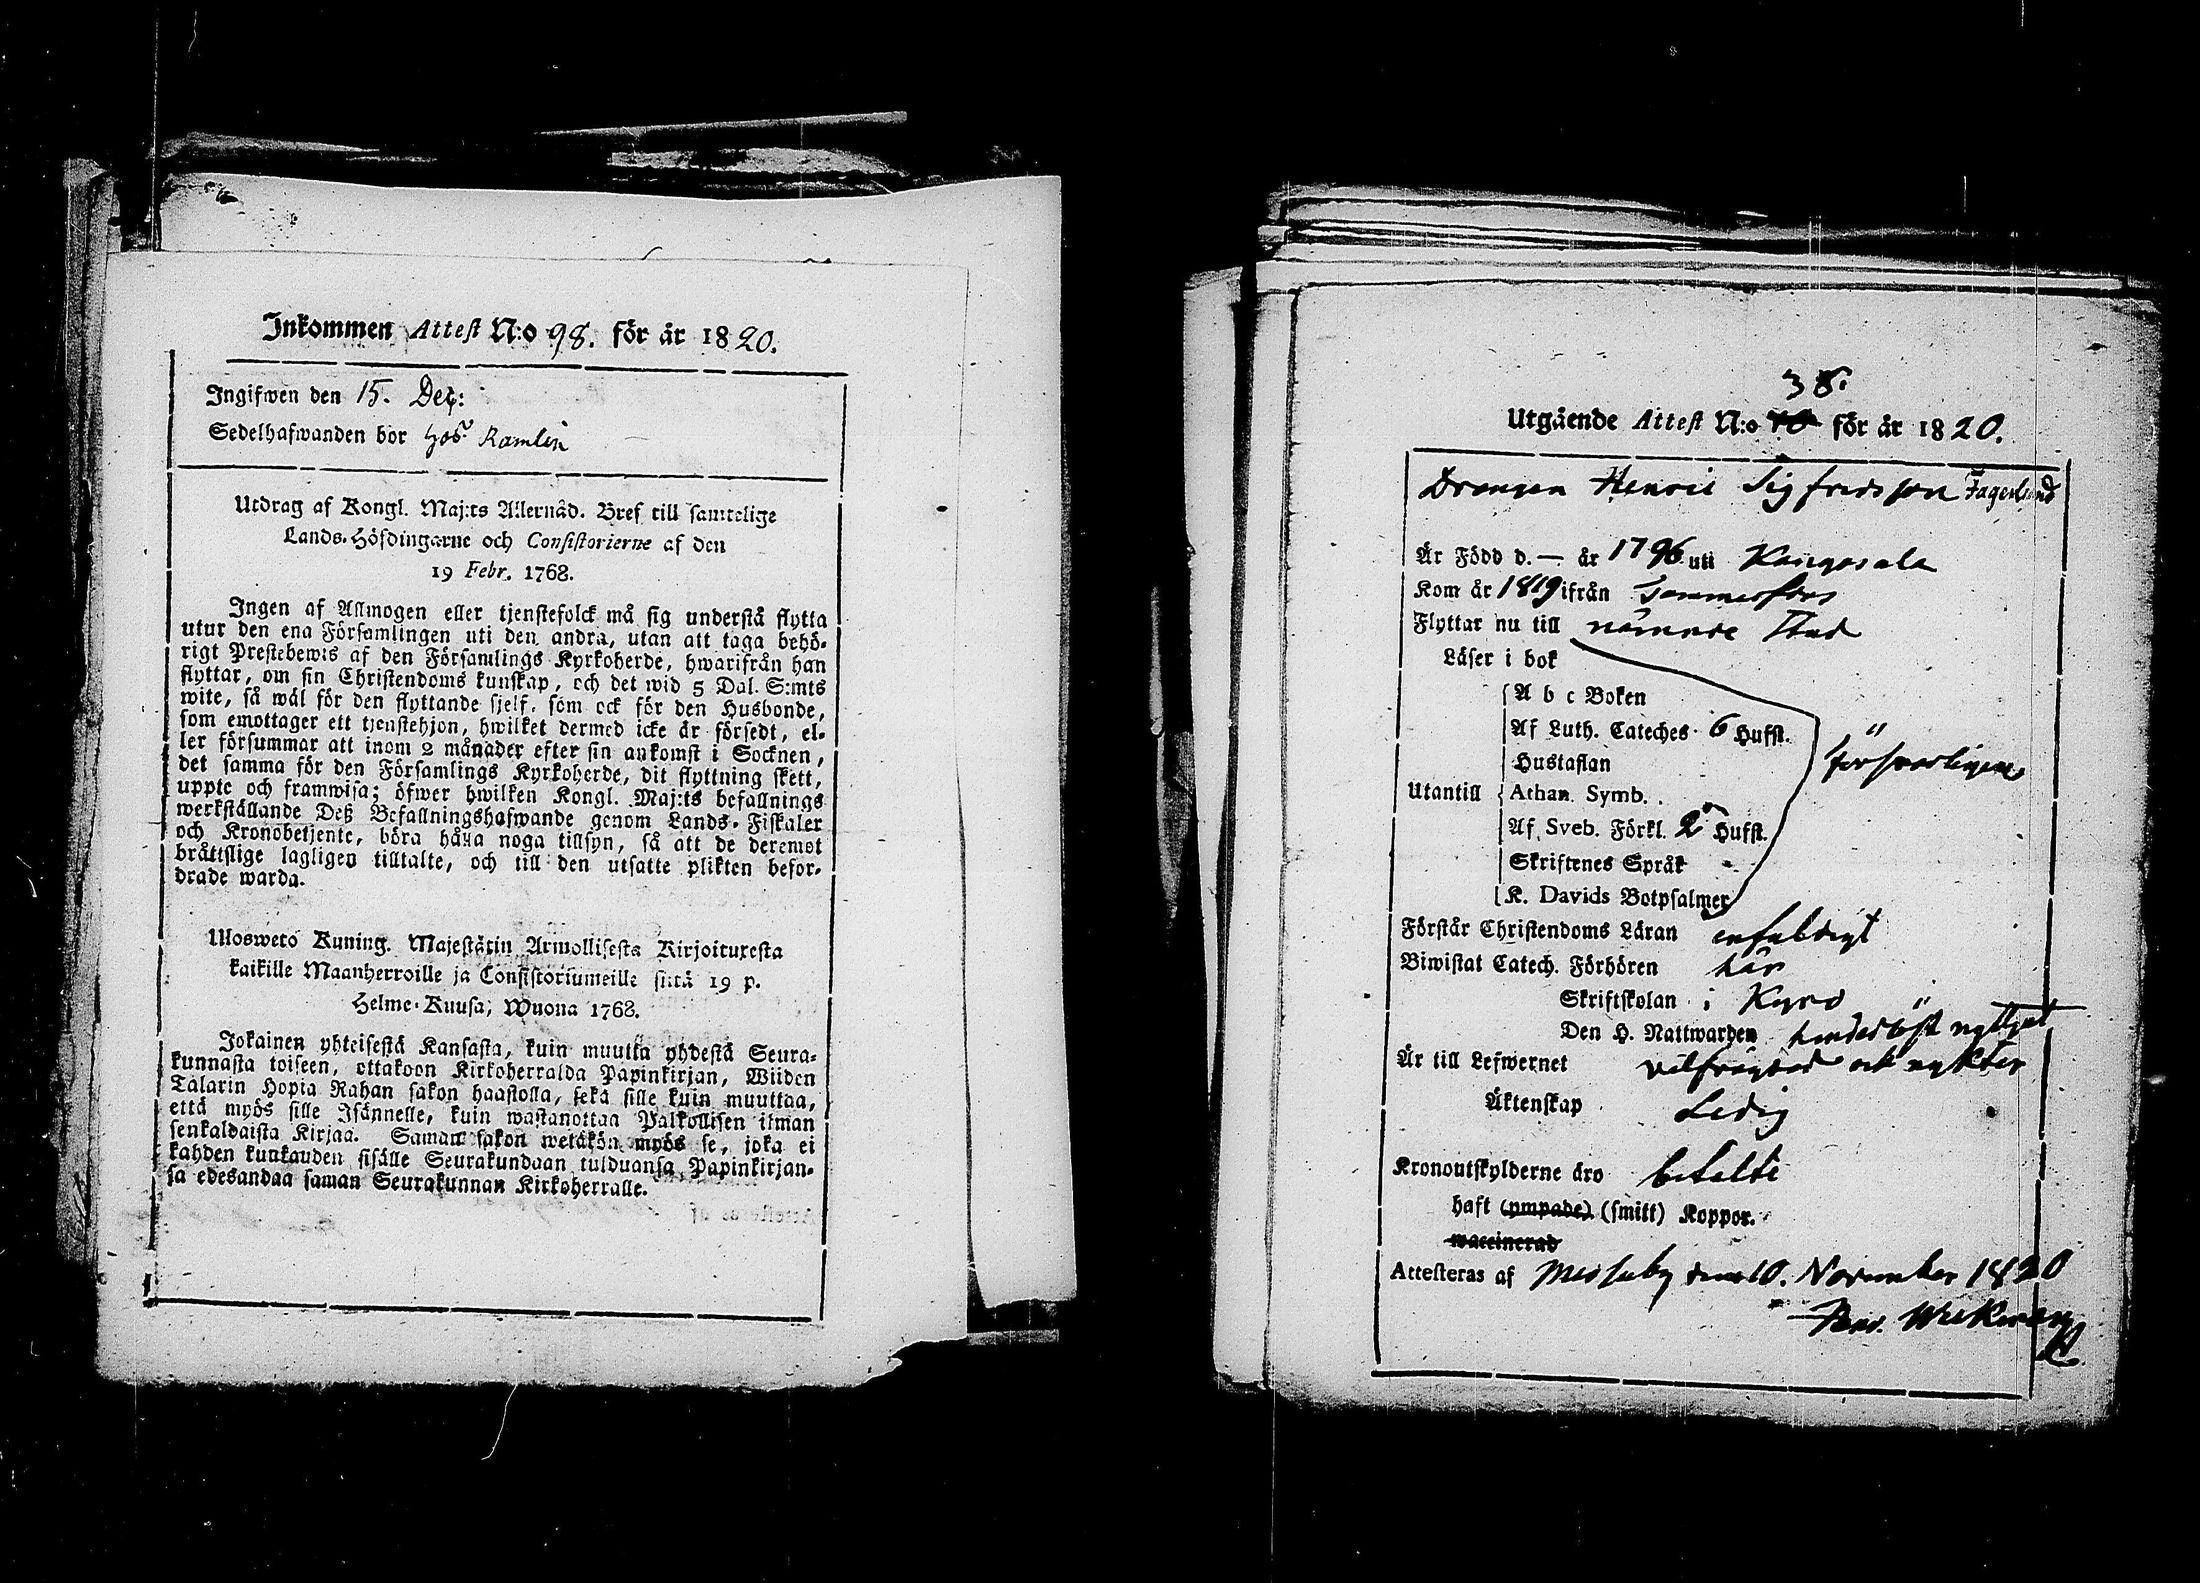 Inkommen Attest N:o 98. för år 1820.
Ingifwen den 15. Dec:
Sedelhafwanden bor hos Ramlin
Utdrag af Kongl. Maj:ts Allernåd. Bref till samtelige
Lands-Höfdingarne och Consistorierne af den
19 Febr. 1768.
Ingen af Allmogen eller tjenstefolck må sig understå flytta
utur den ena Församlingen uti den andra, utan att taga behö-
rigt Prestebewis af den Församlings Kyrkoherde, hwarifrån han
flyttar, om sin Christendoms kunskap, och det wid 5 Dal. S:mts
wite, så wäl för den flyttande sjelf, som ock för den Husbonde,
som emottager ett tjenstehjon, hwilket dermed icke är försedt, el-
ler försummar att inom 2 månader efter sin ankomst i Socknen,
det samma för den Församlings Kyrkoherde, dit flyttning skett,
uppte och framwisa; öfwer hwilken Kongl. Maj:ts befallnings
werkställande Deß Befallningshafwande genom Lands-Fiskaler
och Kronobetjente, böra hålla noga tillsyn, så att de deremot
bråttslige lagligen tilltalte, och till den utsatte plikten befor-
drade warda.
Ulosweto Kuning. Majestätin Armollisesta Kirjoituxesta
kaikille Maanherroille ja Consistoriumeille siitä 19 p.
Helme-Kuusa, Wuona 1768.
Jokainen yhteisestä Kansasta, kuin muutta yhdestä Seura-
kunnasta toiseen, ottakoon Kirkoherralda Papinkirjan, Wiiden
Talarin Hopia Rahan sakon haastolla, sekä sille kuin muuttaa,
että myös sille Isännelle, kuin wastanottaa Palkollisen ilman
senkaldaista Kirjaa. Saman sakon wetäkön myös se, joka ei
kahden kuukauden sisälle Seurakundaan tulduansa Papinkirjan-
sa edesandaa saman Seurakunnan Kirkoherralle.
38.
Utgående Attest N:o för år 1820.
Drengen Henric Sigfridsson Fagerlund
Är Född d. — år 1796 uti Kangasala
Kom år 1819 ifrån Tammerfors
Flyttar nu till nämnde Stad
Läser i bok
A b c Boken
Af Luth. Cateches 6 Hufst.
Hustaflan
försvarligen
Utantill Athan. Symb.
Af Sveb. Förkl. 2 Hufst.
Skriftenes Språk
K. Davids Botpsalmer
Förstår Christendoms Läran enfaldigt
Biwistat Catech. Förhören här
Skriftskolan i Kyro
Den H. Nattwarden hinderlöst nyttjat
Är till Lefwernet välfrägdad och nykter
Äktenskap Ledig
Kronoutskylderne äro betalte
haft (ympade) (smitt) Koppor.
waccinerad
Attesteras af Messuby den 10. November 1820